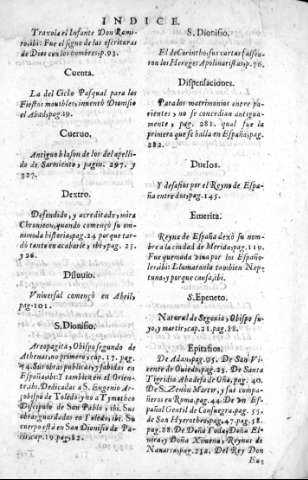 INDICE.
Travola el Infante Don Rami-
ro: ibi: Fue el signo de las escrituras
de Dios con los hombres. p. 93.
Cuenta.
La del Ciclo Pasqual para las
Fiestas movibles, inventò Dionisio
el Abad, pag. 19.
Cueruo.
Antiguo blason de los del apelli-
do de Sarmiento, pagin. 297. y
327.
Dextro.
Defendido, y acreditado, mira
Chronicon, quando començò su om-
nimoda historia, pag. 24 por que tar-
dò tanto en acabarle, ibi, pag. 25.
y 26.
Diluuio.
Vniversal començò en Abril,
pag. 101.
S. Dionisio.
Areopagita, Obispo segundo de
Athenas, no primero, cap. 17. pag.
74. Sus obras publicas, y sabidas en
España. ibi: Y tambien en el Orien-
te, ibi. Dedicadas a S. Eugenio Ar-
çobispo de Toledo, y no a Tymotheo
Discipulo de San Pablo, ibi. Sus
obras guardadas en Toledo, ibi. Su
cuerpo està en San Dionisio de Pa-
ris, cap. 19. pag. 82.
S. Dionisio.
El de Corintho: sus cartas falsea-
ron los Hereges Apolinaristas. p. 76.
Dispensaciones.
Para los matrimonios entre pa-
rientes, no se concedian antigua-
mente, pag. 281. qual fue la
primera que se halla en España, pag.
282.
Duelos.
Y desafios por el Reyno de Espa-
ña entre dos, pag. 145.
Emerita.
Reyna de España dexò su nom-
bre a la ciudad de Merida, pag. 119.
Fue quemada viva por los Españo-
les: ibi: Llamaronla tambien Nep-
tuna, y porque causa, ibi.
S. Epeneto.
Natural de Segovia, Obispo su-
yo, y martir, cap. 21. pag. 88.
Epitafios.
De Adan, pag. 95. De San Vi-
cente de Oviedo, pag. 25. De Santa
Tigridia Abadesa de Oña, pag. 40.
De S. Zenon Martyr, y sus compa-
ñeros en Roma, pag. 44. De un Es-
pañol Gentil de Consuegra, pag. 55.
de San Hyerotheo, pag. 47. pag. 58.
pag. 88. De Doña Toda, Doña El-
vira, y Doña Ximena, Reynas de
Navarra, pag. 258. Del Rey Don